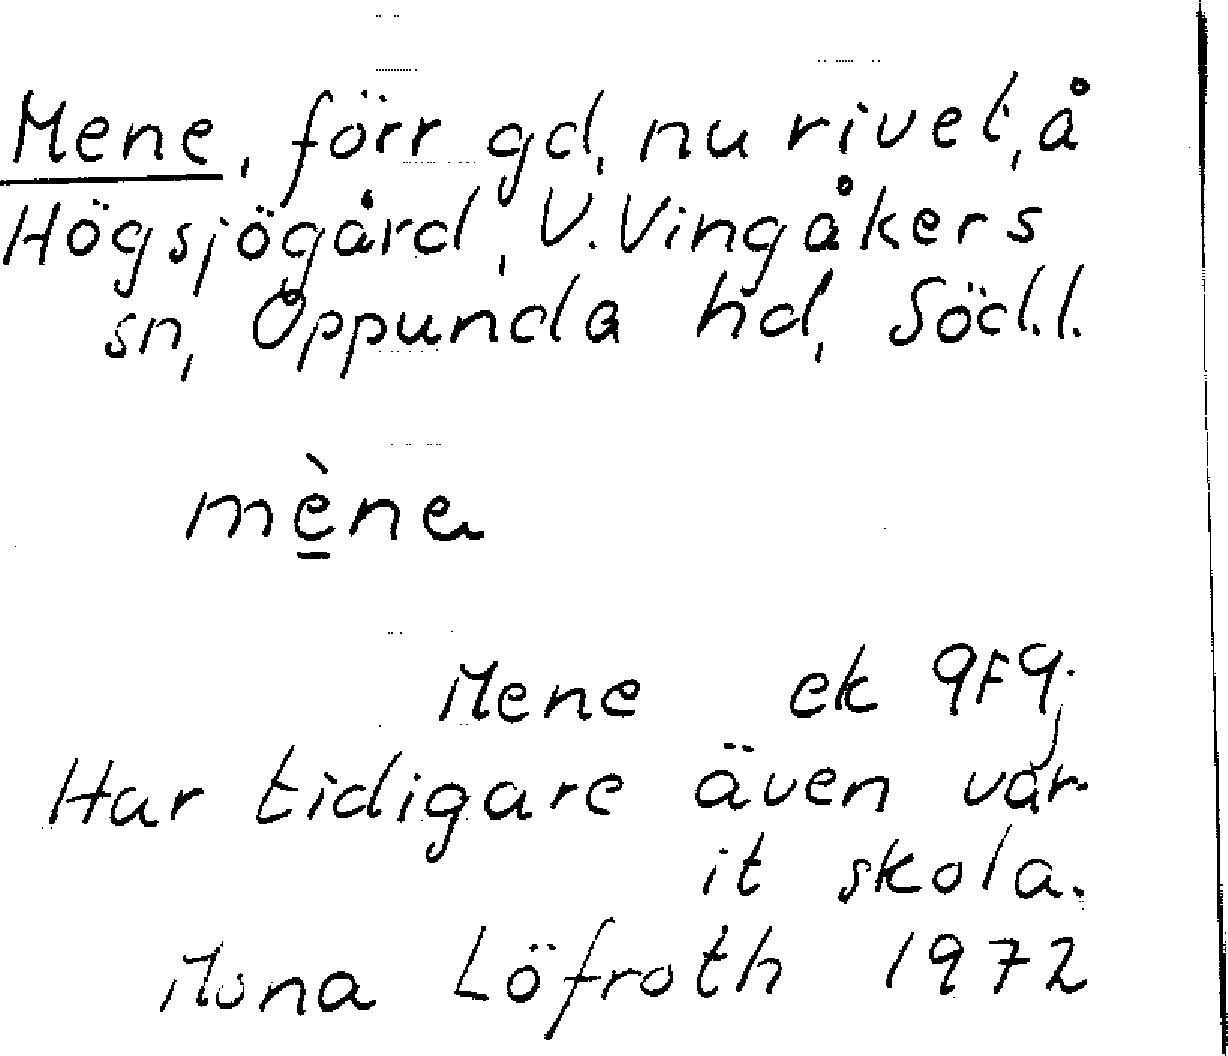 Mene, förr gd, nu rivet, å
Högsjögård, V. Vingåkers
sn, Oppunda hd, Södl.
mène
Mene ek 9F9j
Har tidigare även var-
it skola.
Mona Löfroth 1972